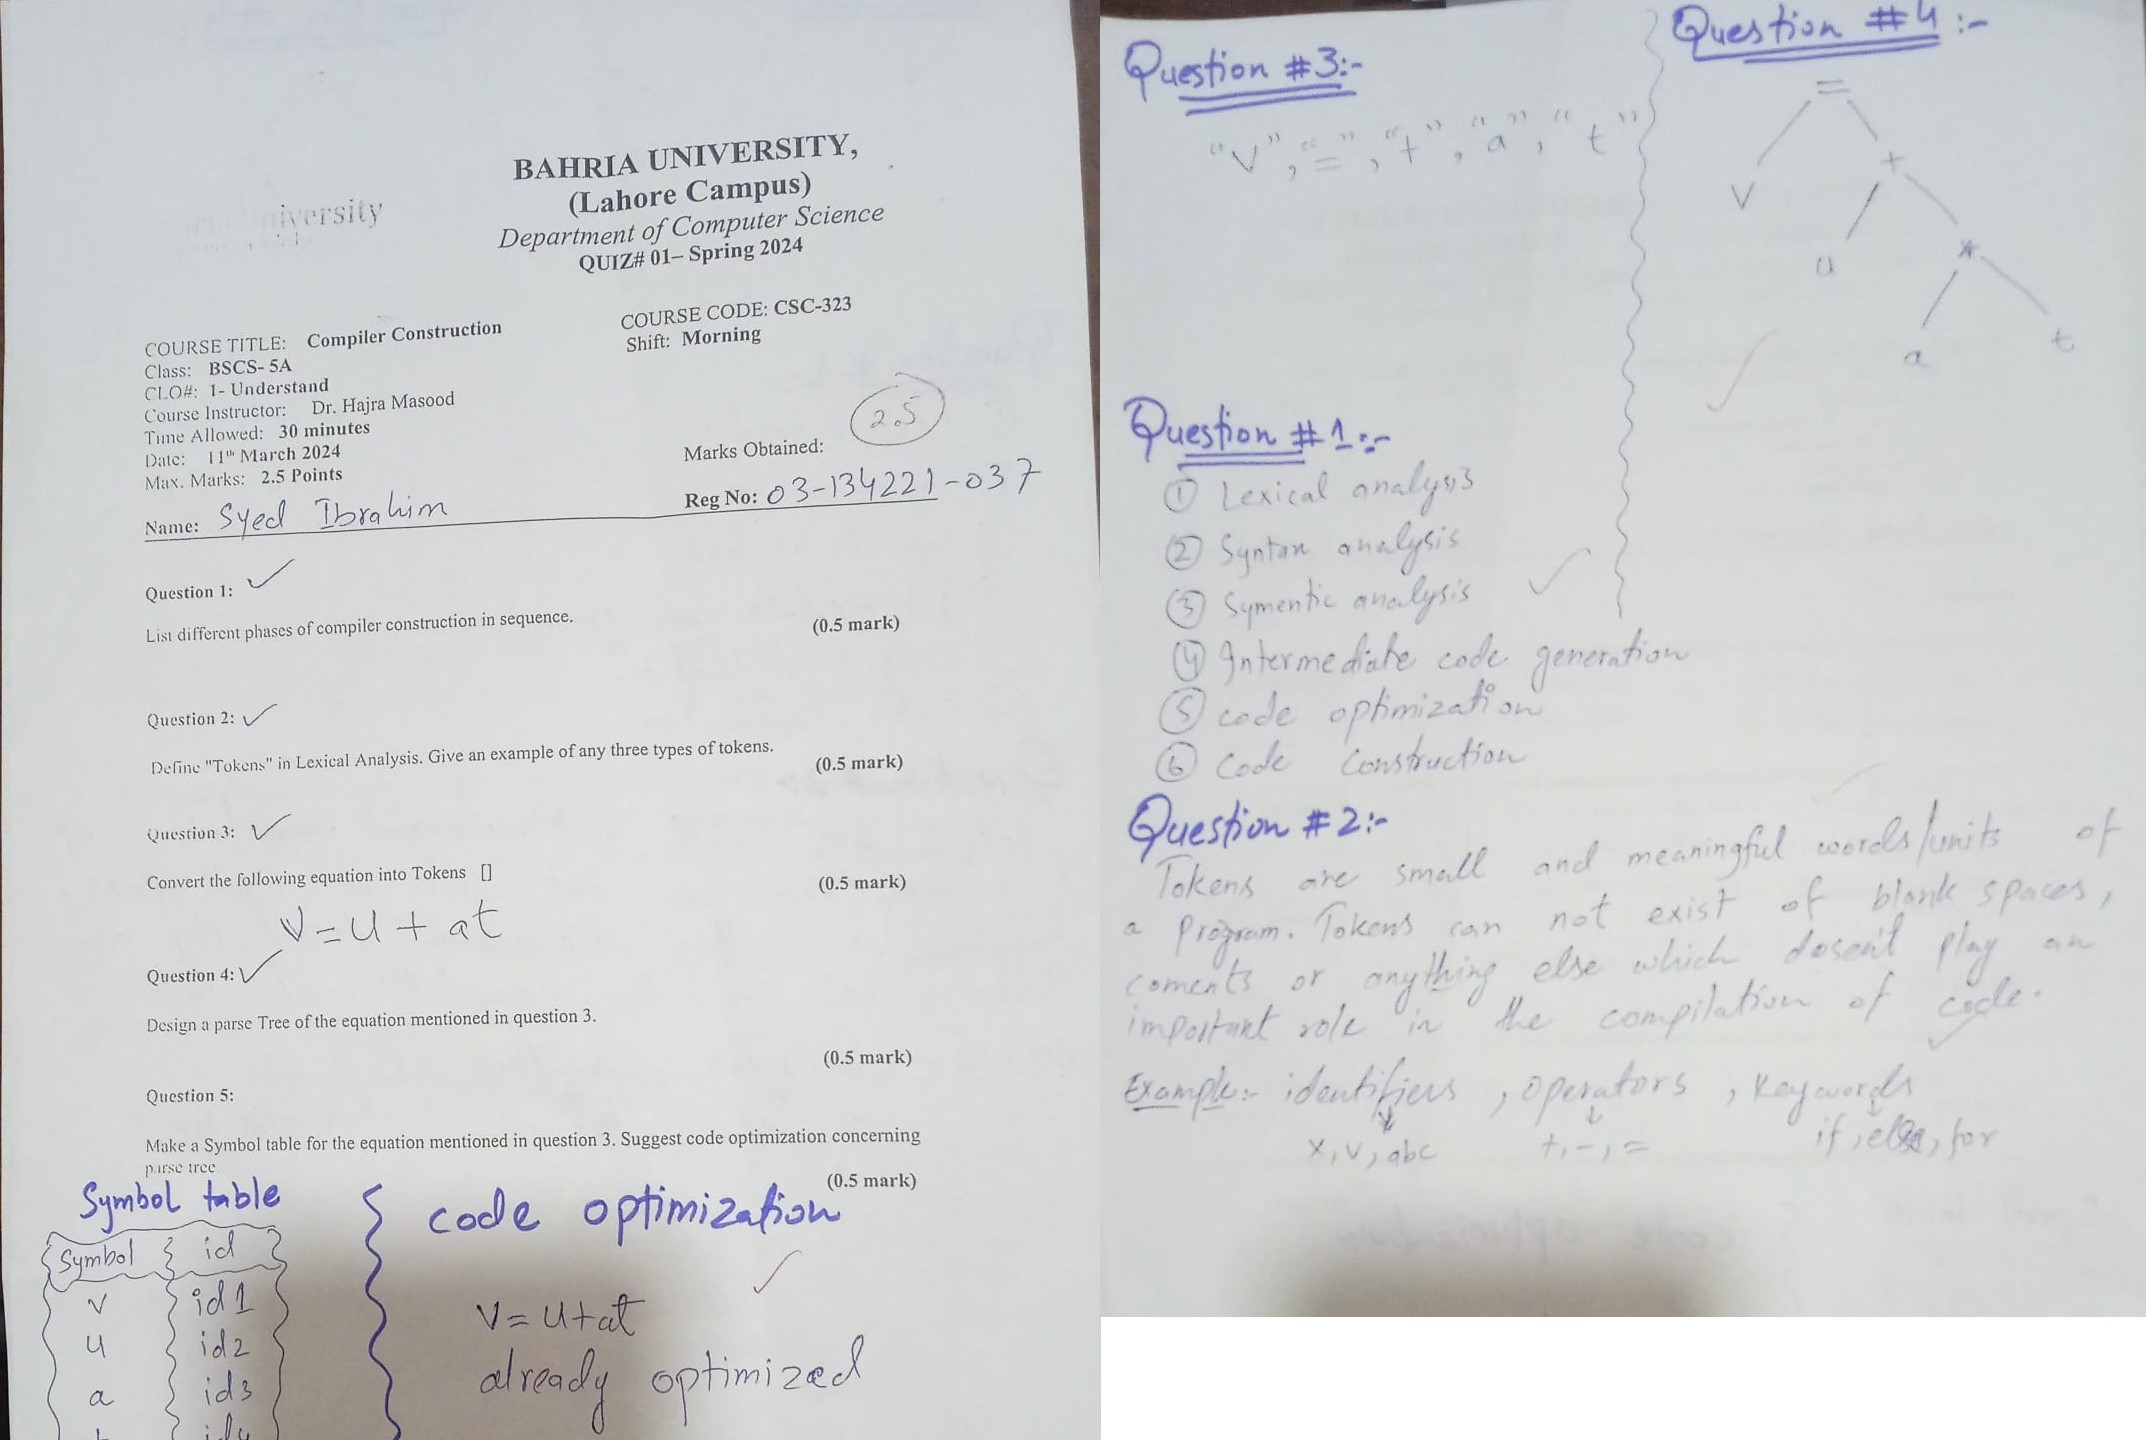 BAHRIA UNIVERSITY,
(Lahore Campus)
university
Department of Computer Science
QUIZ# 01– Spring 2024
COURSE TITLE: Compiler Construction
COURSE CODE: CSC-323
Class: BSCS- 5A
Shift: Morning
CLO#: 1- Understand
Course Instructor: Dr. Hajra Masood
Time Allowed: 30 minutes
Date: 11th March 2024
Max. Marks: 2.5 Points
Marks Obtained: 2.5
Name: Syed Ibrahim
Reg No: 03-134221-037
Question 1:
List different phases of compiler construction in sequence. (0.5 mark)
Question 2:
Define "Tokens" in Lexical Analysis. Give an example of any three types of tokens. (0.5 mark)
Question 3:
Convert the following equation into Tokens [] (0.5 mark)
V=u+at
Question 4:
Design a parse Tree of the equation mentioned in question 3.
(0.5 mark)
Question 5:
Make a Symbol table for the equation mentioned in question 3. Suggest code optimization concerning
parse tree
(0.5 mark)
Symbol table
Symbol id
v id1
u id2
a id3
id4
code optimization
v=u+at
already optimized
Question #3:-
"V", "=", "+", "a", "t"
Question #4:-
=
V +
u *
a t
Question #1:-
① Lexical analysis
② Syntax analysis
③ Symentic analysis
④ Intermediate code generation
⑤ code optimization
⑥ Code Construction
Question #2:-
Tokens are small and meaningful words/units of
a program. Tokens can not exist of blank spaces,
coments or anything else which dosen't play an
important role in the compilation of code.
Example:- identifiers, operators, keywords
x, v, abc +, -, = if, else, for